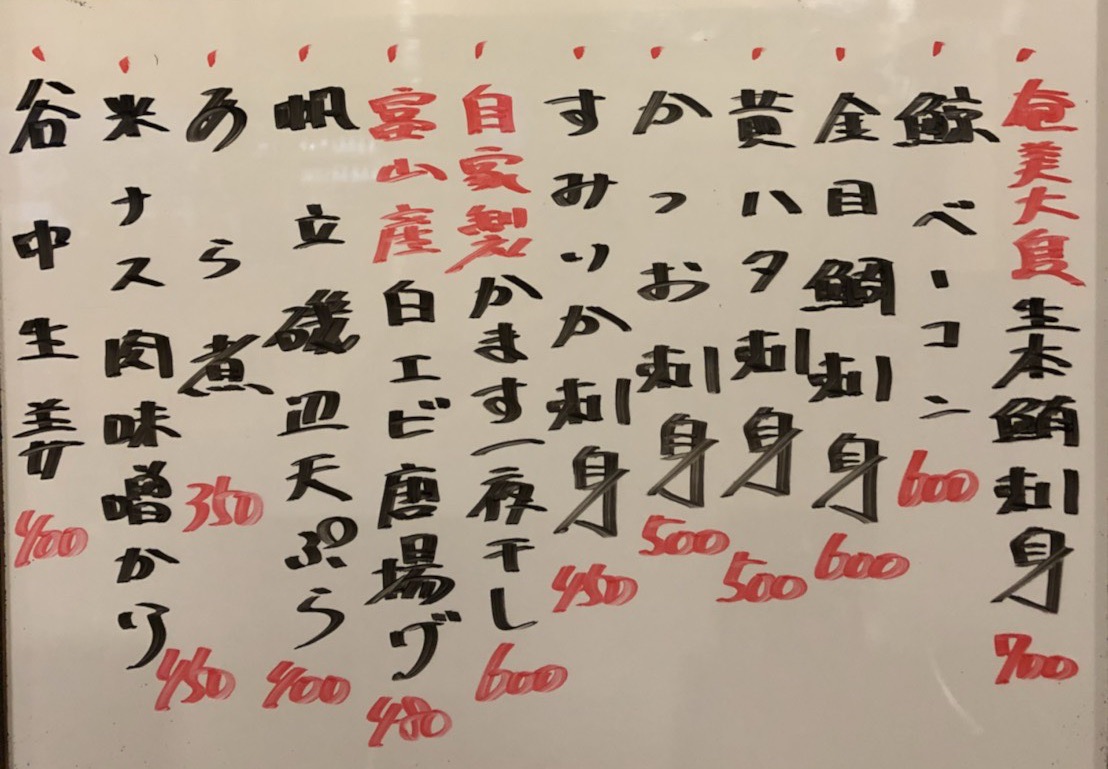 奄美大島生本鮪刺身 700
鯨ベーコン 600
金目鯛刺身 600
黄ハタ刺身 500
かつお刺身 500
すみいか刺身 450
自家製かます一夜干し 600
富山産白エビ唐揚げ 480
帆立磯辺天ぷら 400
あら煮 350
米ナス肉味噌かけ 450
谷中生姜 400